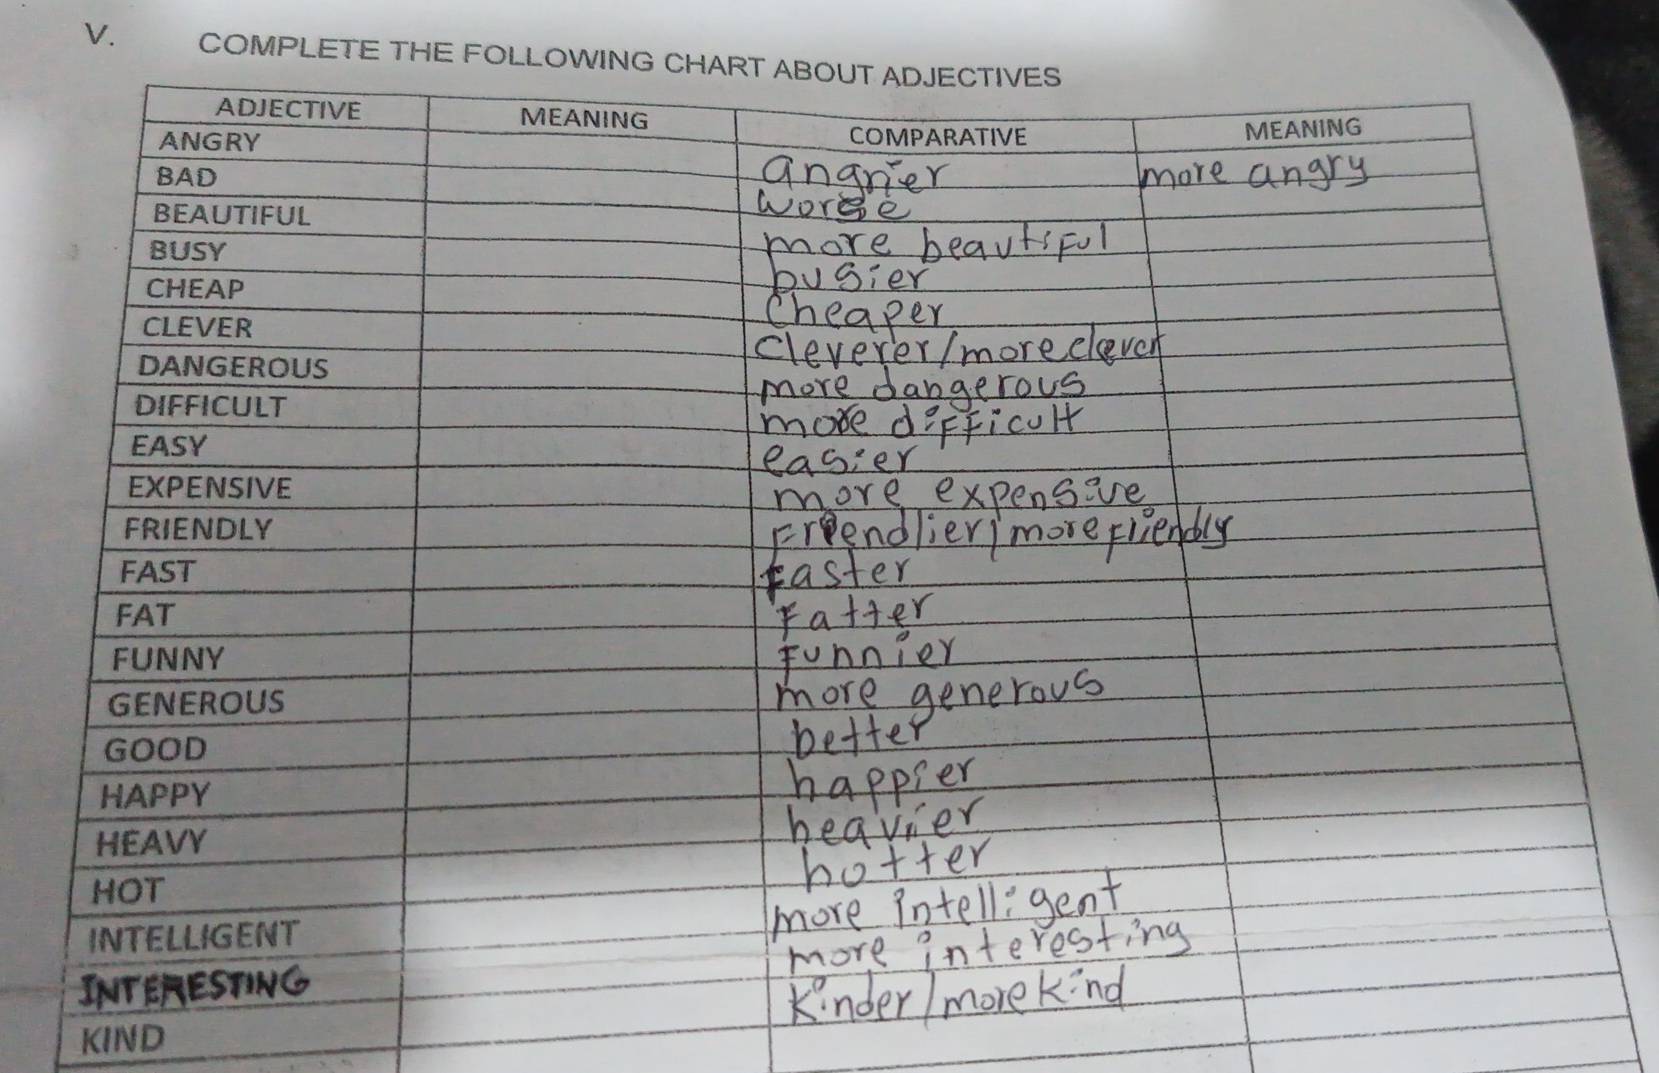 V. COMPLETE THE FOLLOWING CHART ABOUT ADJECTIVES
ADJECTIVE MEANING COMPARATIVE MEANING
ANGRY angrier more angry
BAD worse
BEAUTIFUL more beautiful
BUSY busier
CHEAP cheaper
CLEVER cleverer/more clever
DANGEROUS more dangerous
DIFFICULT more difficult
EASY easier
EXPENSIVE more expensive
FRIENDLY Friendlier/more friendly
FAST Faster
FAT Fatter
FUNNY Funnier
GENEROUS more generous
GOOD better
HAPPY happier
HEAVY heavier
HOT hotter
INTELLIGENT more intelligent
INTERESTING more interesting
KIND Kinder/more kind